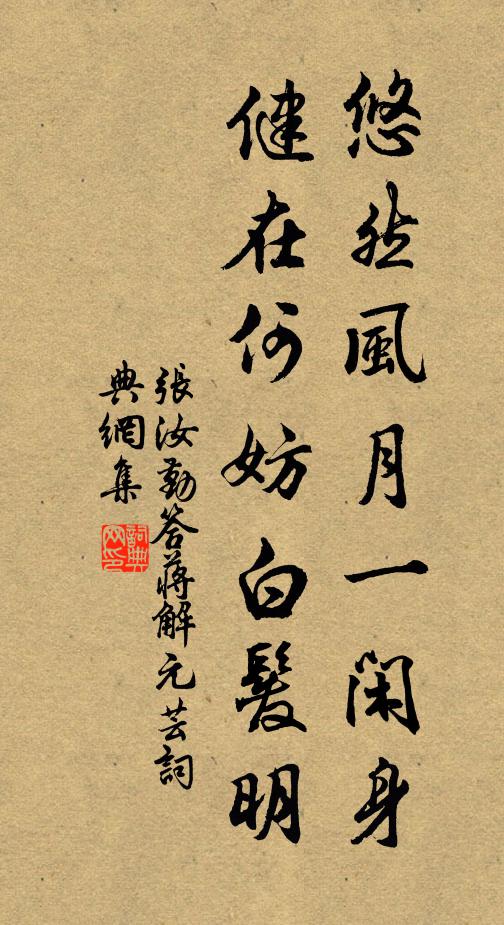 悠然風月一閑身
健在何妨白髮明
張汝勤答蔣解元芸詞
典網集
詞典
网印